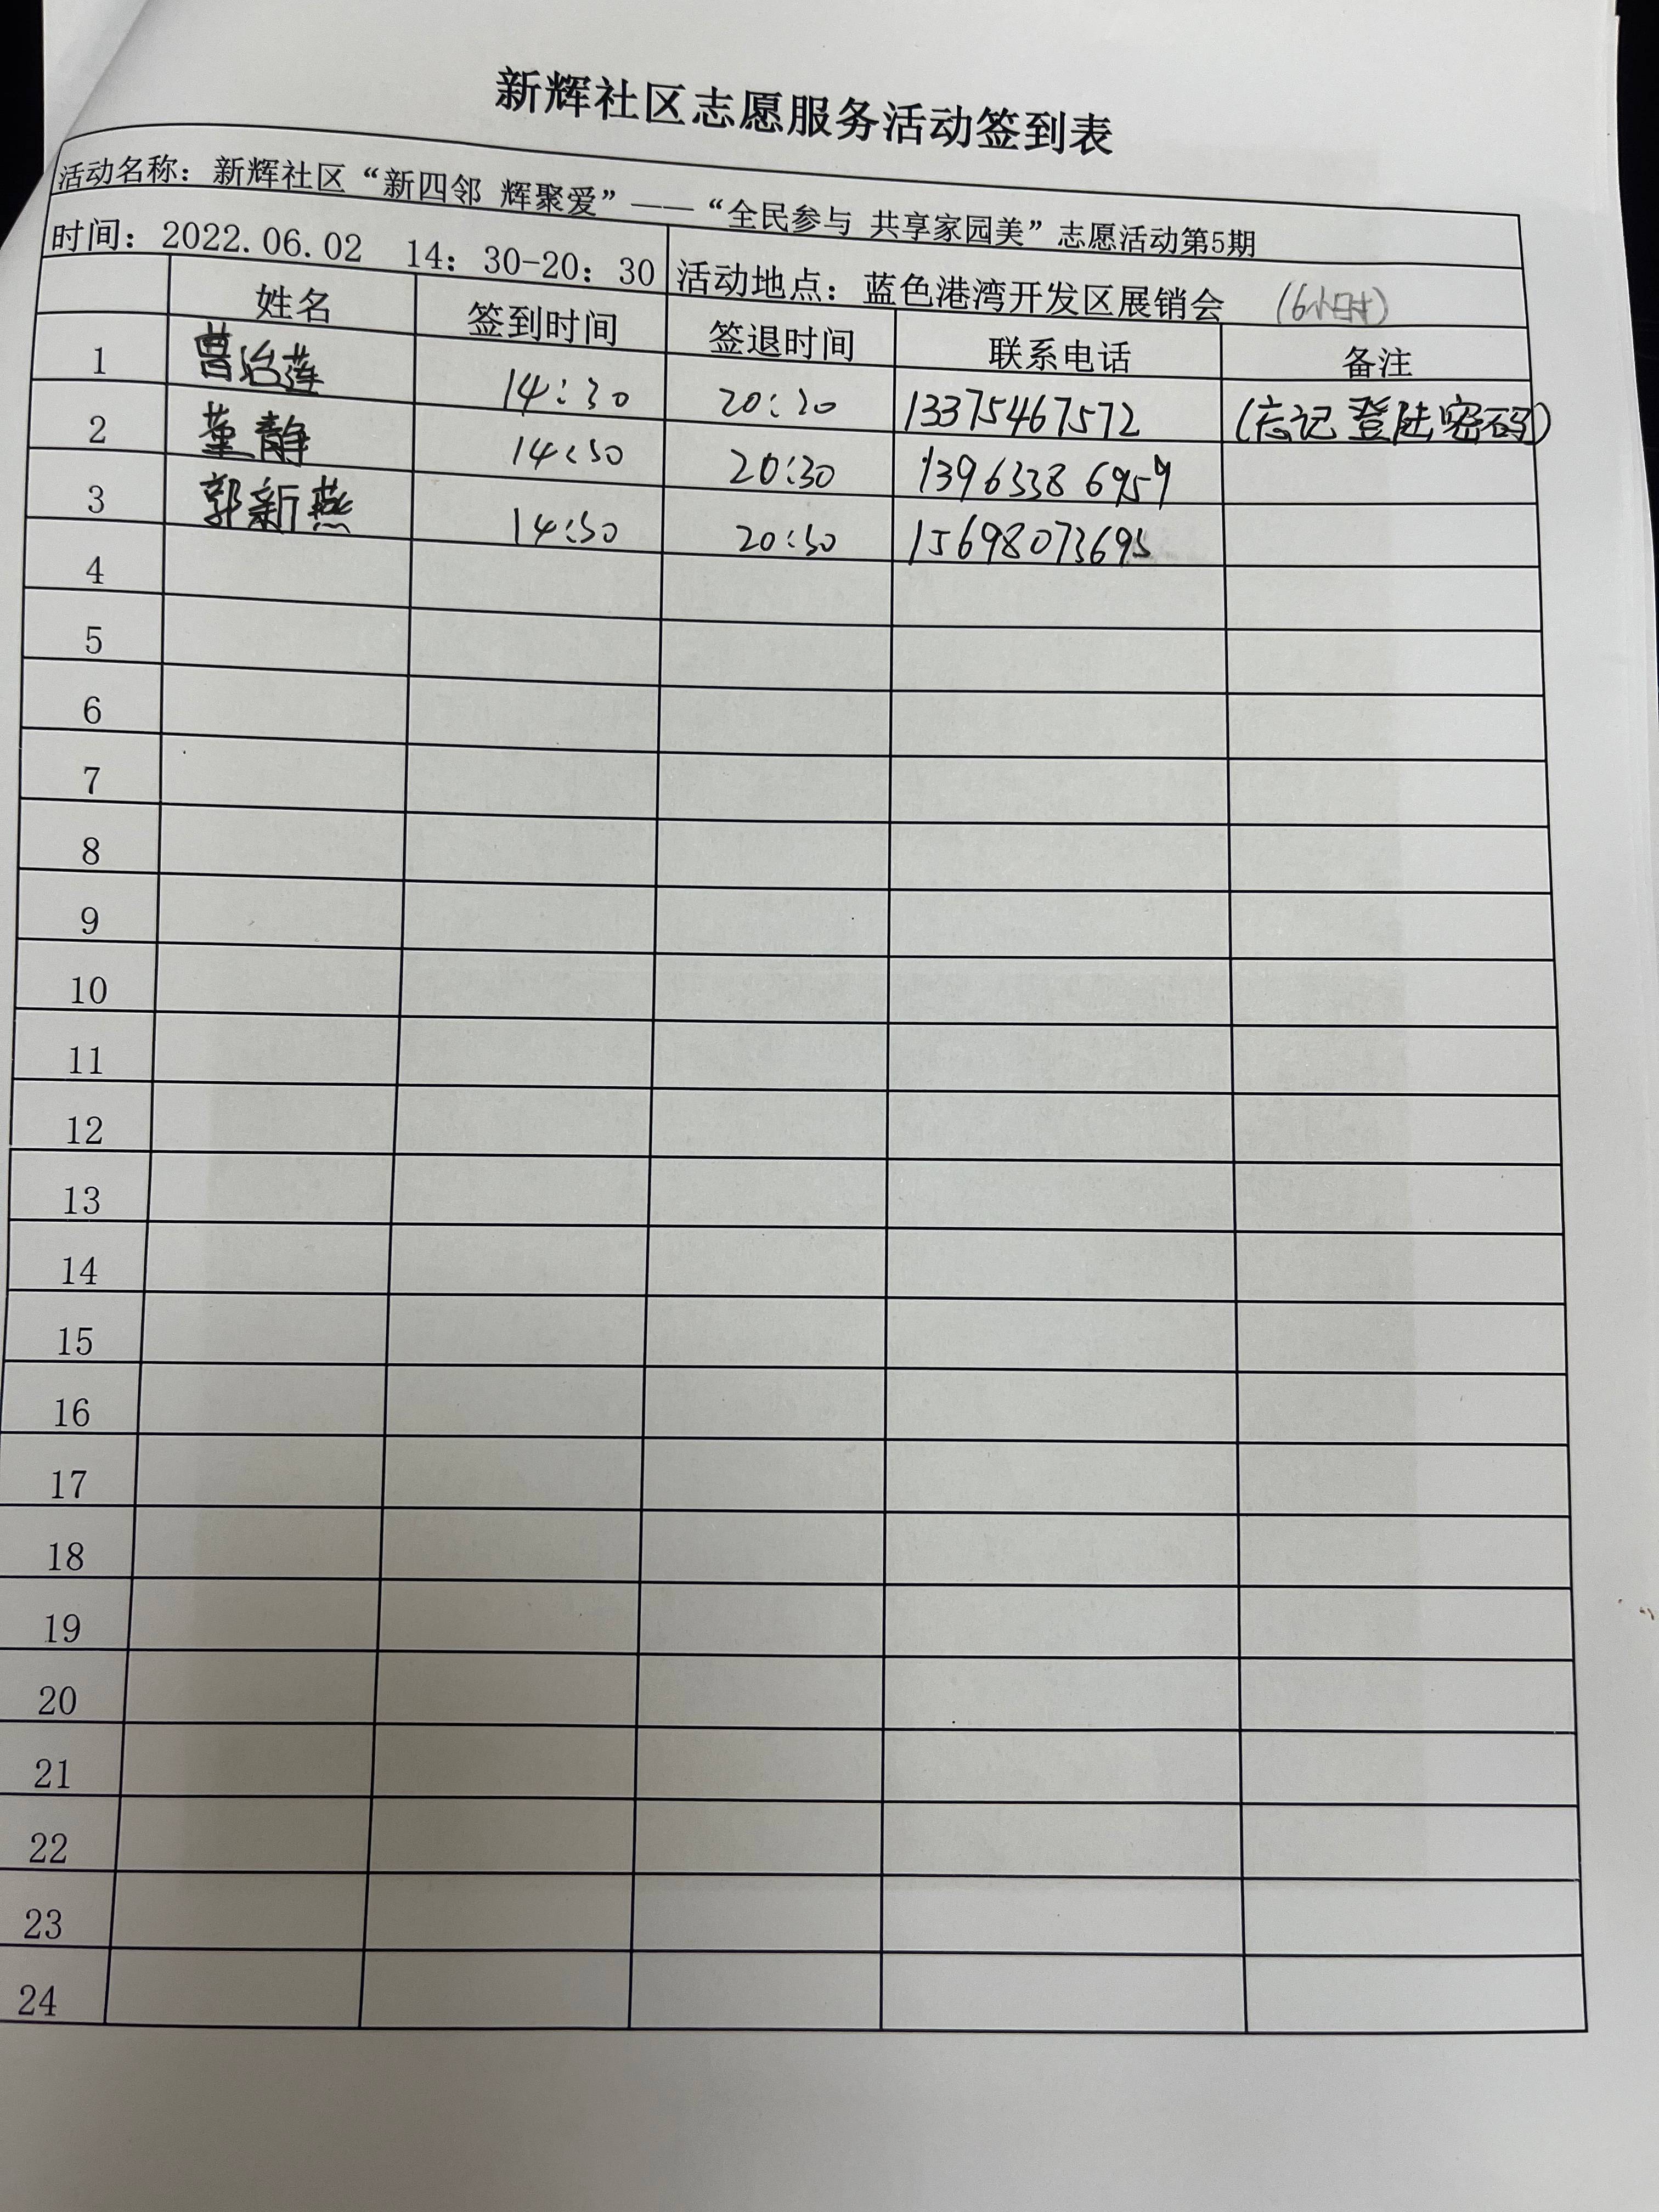 新辉社区志愿服务活动签到表
活动名称：新辉社区“新四邻 辉聚爱”——“全民参与 共享家园美”志愿活动第5期
时间：2022.06.02 14：30-20：30 活动地点：蓝色港湾开发区展销会 (6小时)
姓名 签到时间 签退时间 联系电话 备注
1 曹治莲 14:30 20:30 13375467572 (忘记登陆密码)
2 董静 14:30 20:30 13963386959
3 郭新燕 14:30 20:30 15698073695
4
5
6
7
8
9
10
11
12
13
14
15
16
17
18
19
20
21
22
23
24